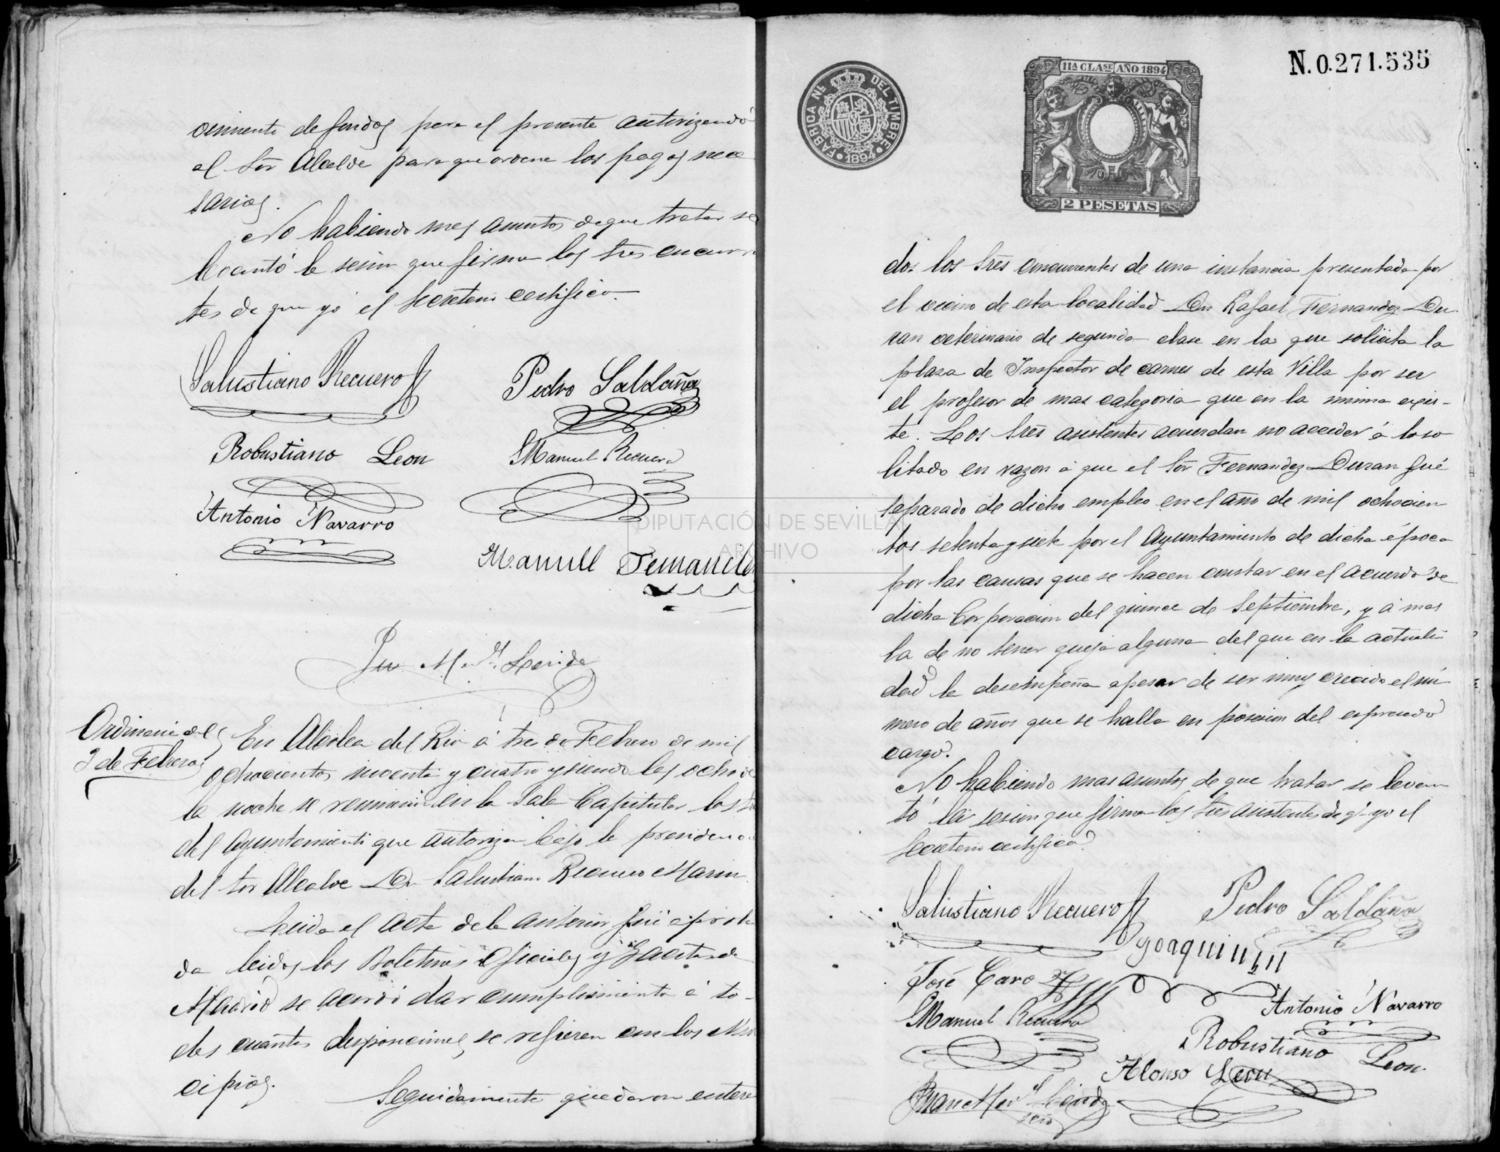 cimiento de fondos para el presente autorizando
al Sor Alcalde para que ordene los pagos nece
sarios.
No habiendo mas asuntos de que tratar se
levantó la sesion que firman los Sres concurren
tes de que yo el Secretario certifico.
Salustiano Recuero
Pedro Saldaña
Robustiano Leon
Manuel Recuero
Antonio Navarro
Manuell Fernande
Ordinaria del
3 de Febrero
En Alcolea del Rio á tres de Febrero de mil
ochocientos noventa y cuatro y siendo las ocho de
la noche se reunieron en la Sala Capitular los
del Ayuntamiento que autorizan bajo la presidencia
del Sor Alcalde Dn Salustiano Recuero Marin.
Leida el acta de la anterior fué aproba
da leidos los Boletines Oficiales y Gacetas de
Madrid se acordó dar cumplimiento á to-
das cuantas disposiciones se refieren con los Muni
cipios.
Seguidamente quedaron entera
FABRICA NL DEL TIMBRE
1894
11A CLASE AÑO 1894
2 PESETAS
N.0.271.535
dos los Sres concurrentes de una instancia presentada por
el vecino de esta localidad Dn Rafael Fernandez Du
ran veterinario de segunda clase en la que solicita la
plaza de Inspector de carnes de esta Villa por ser
el profesor de mas categoria que en la misma exis-
te. Los Sres asistentes acuerdan no acceder á lo so
licitado en razon á que el Sor Fernandez Duran fué
separado de dicho empleo en el año de mil ochocien
tos setenta y siete por el Ayuntamiento de dicha época
por las causas que se hacen constar en el acuerdo de
dicha Corporacion del quince de Septiembre, y á mas
la de no tener queja alguna del que en la actuali
dad la desempeña apesar de ser muy crecido el nú
mero de años que se halla en posesion del expresado
cargo.
No habiendo mas asuntos de que tratar se levan
tó la sesion que firman los Sres asistentes de q. yo el
Secretario certifico.
Salustiano Recuero
Pedro Saldaña
Joaquin
José Caro
Antonio Navarro
Manuel Recuero
Robustiano Leon.
Alonso Leon
DIPUTACIÓN DE SEVILLA
ARCHIVO